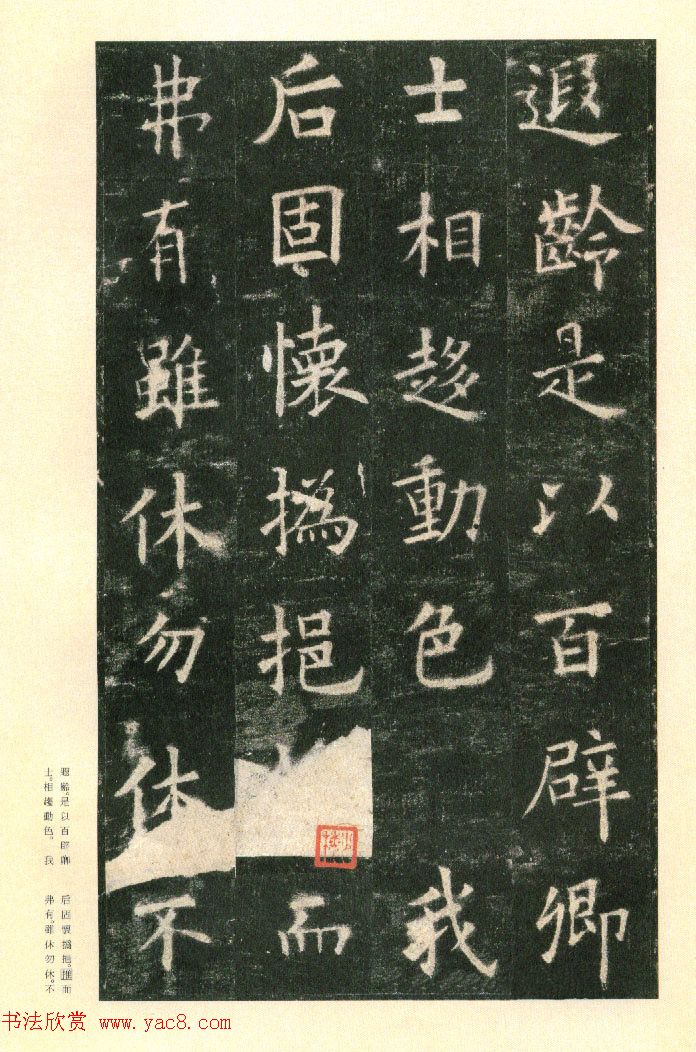 遐齡是以百辟卿
士相趍動色我
后固懷撝挹而
弗有雖休勿休不
遐齡。是以百辟卿
士。相趍動色。我
后固懷撝挹。推而
弗有。雖休勿休。不
书法欣赏 www.yac8.com